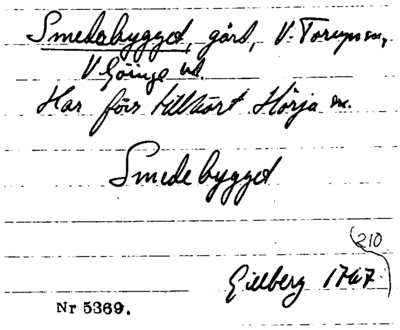 Smedabygget, gård, V. Torups sn,
V Göinge hd.
Har förr tillhört Hörja sn.
Smedebygget
210
Gillberg 1767.
Nr 5369.